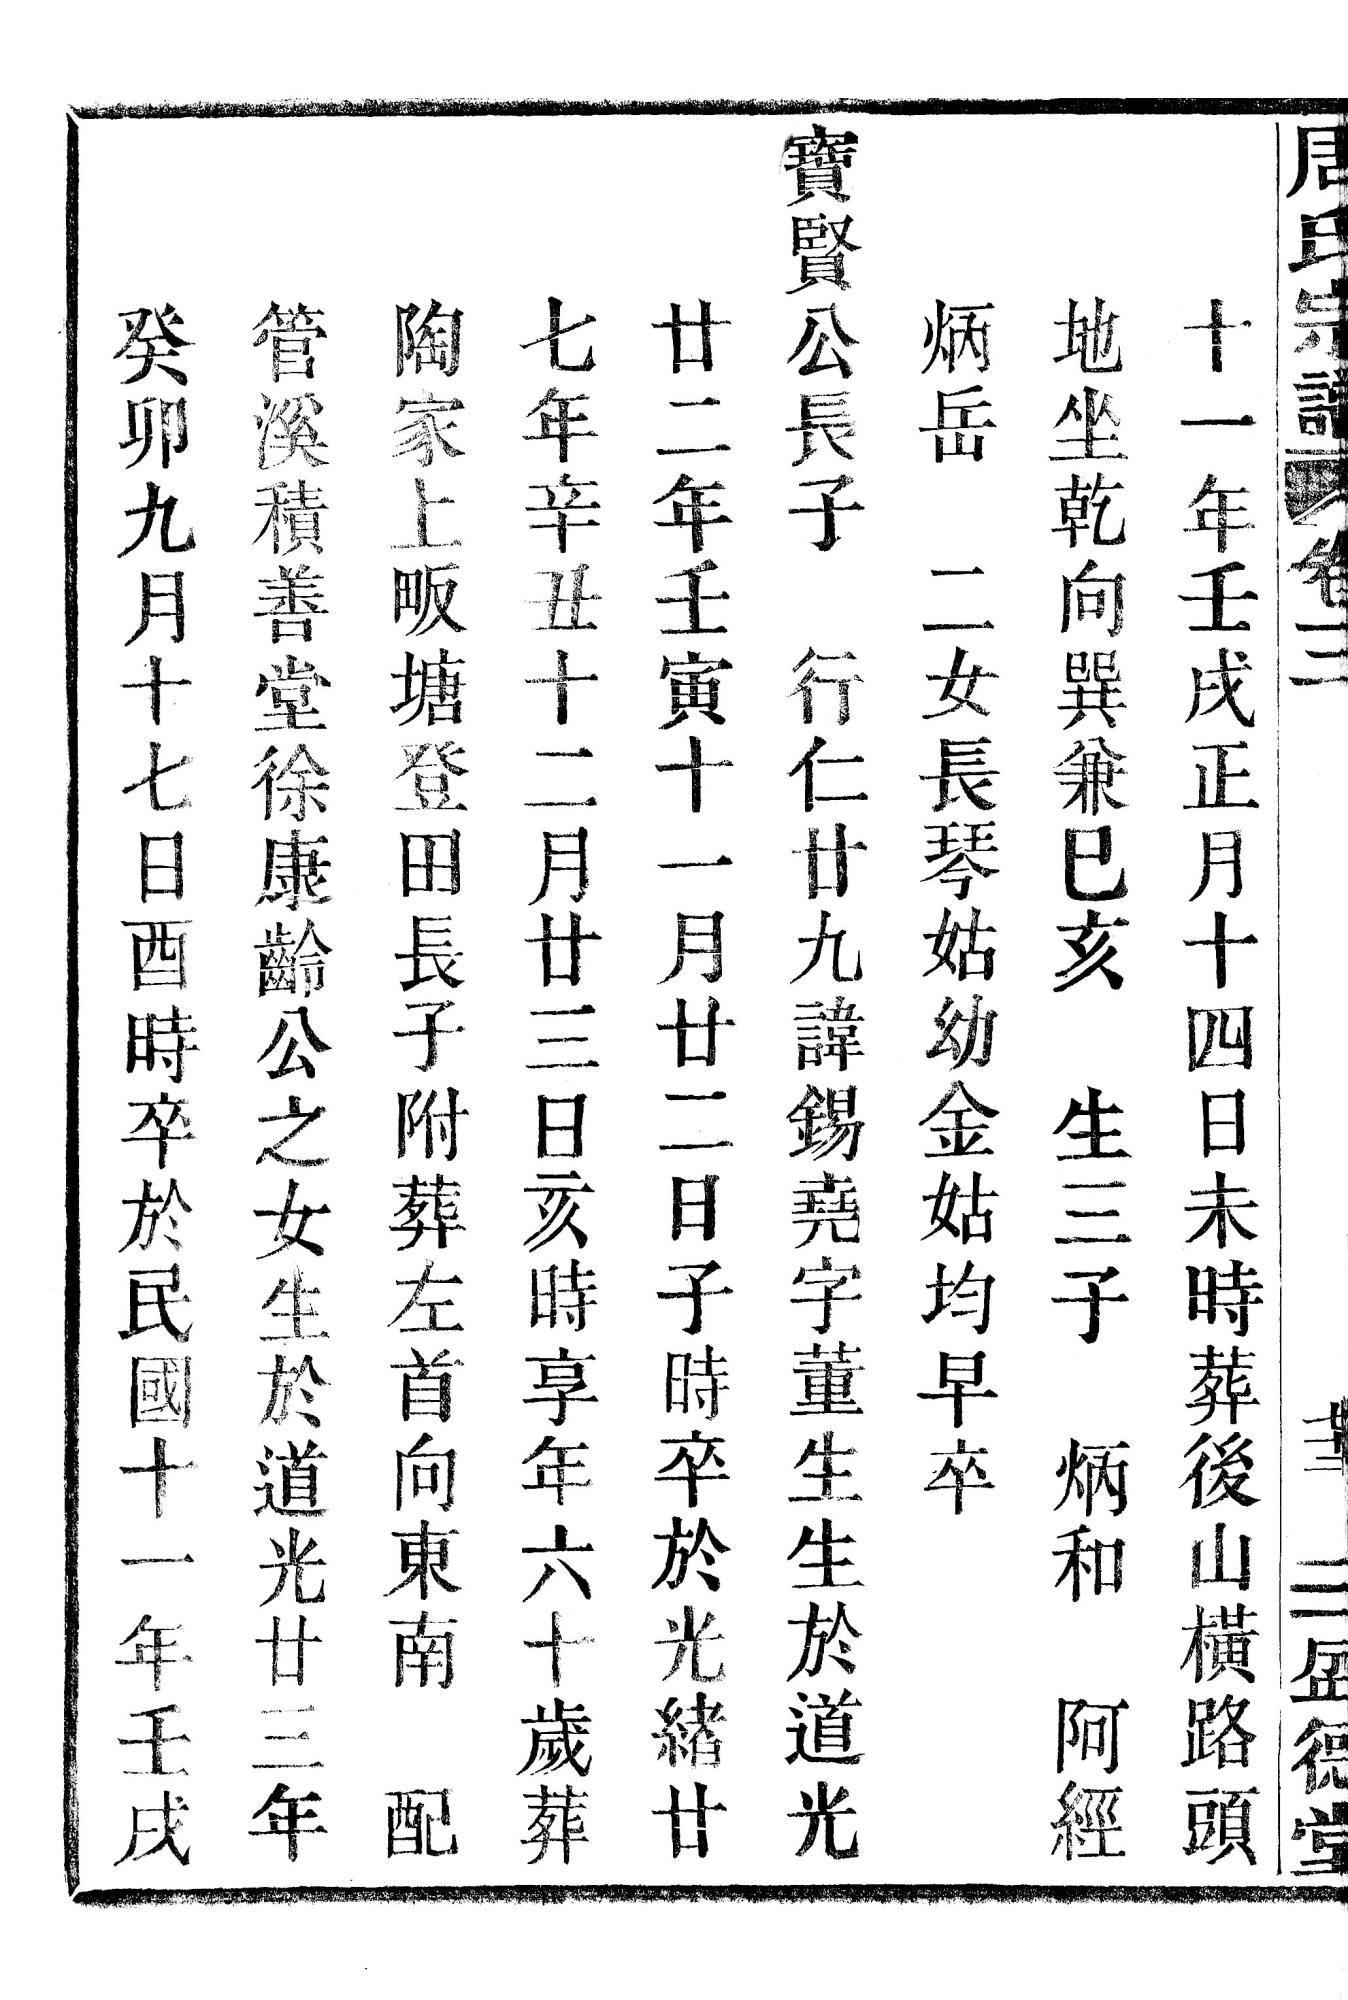 周氏宗譜 卷三 三盈德堂
十一年壬戌正月十四日未時葬後山橫路頭
地坐乾向巽兼巳亥 生三子 炳和 阿經
炳岳 二女長琴姑幼金姑均早卒
寶賢公長子 行仁廿九諱錫堯字董生生於道光
廿二年壬寅十一月廿二日子時卒於光緒廿
七年辛丑十二月廿三日亥時享年六十歲葬
陶家上畈塘登田長子附葬左首向東南 配
管溪積善堂徐康齡公之女生於道光廿三年
癸卯九月十七日酉時卒於民國十一年壬戌